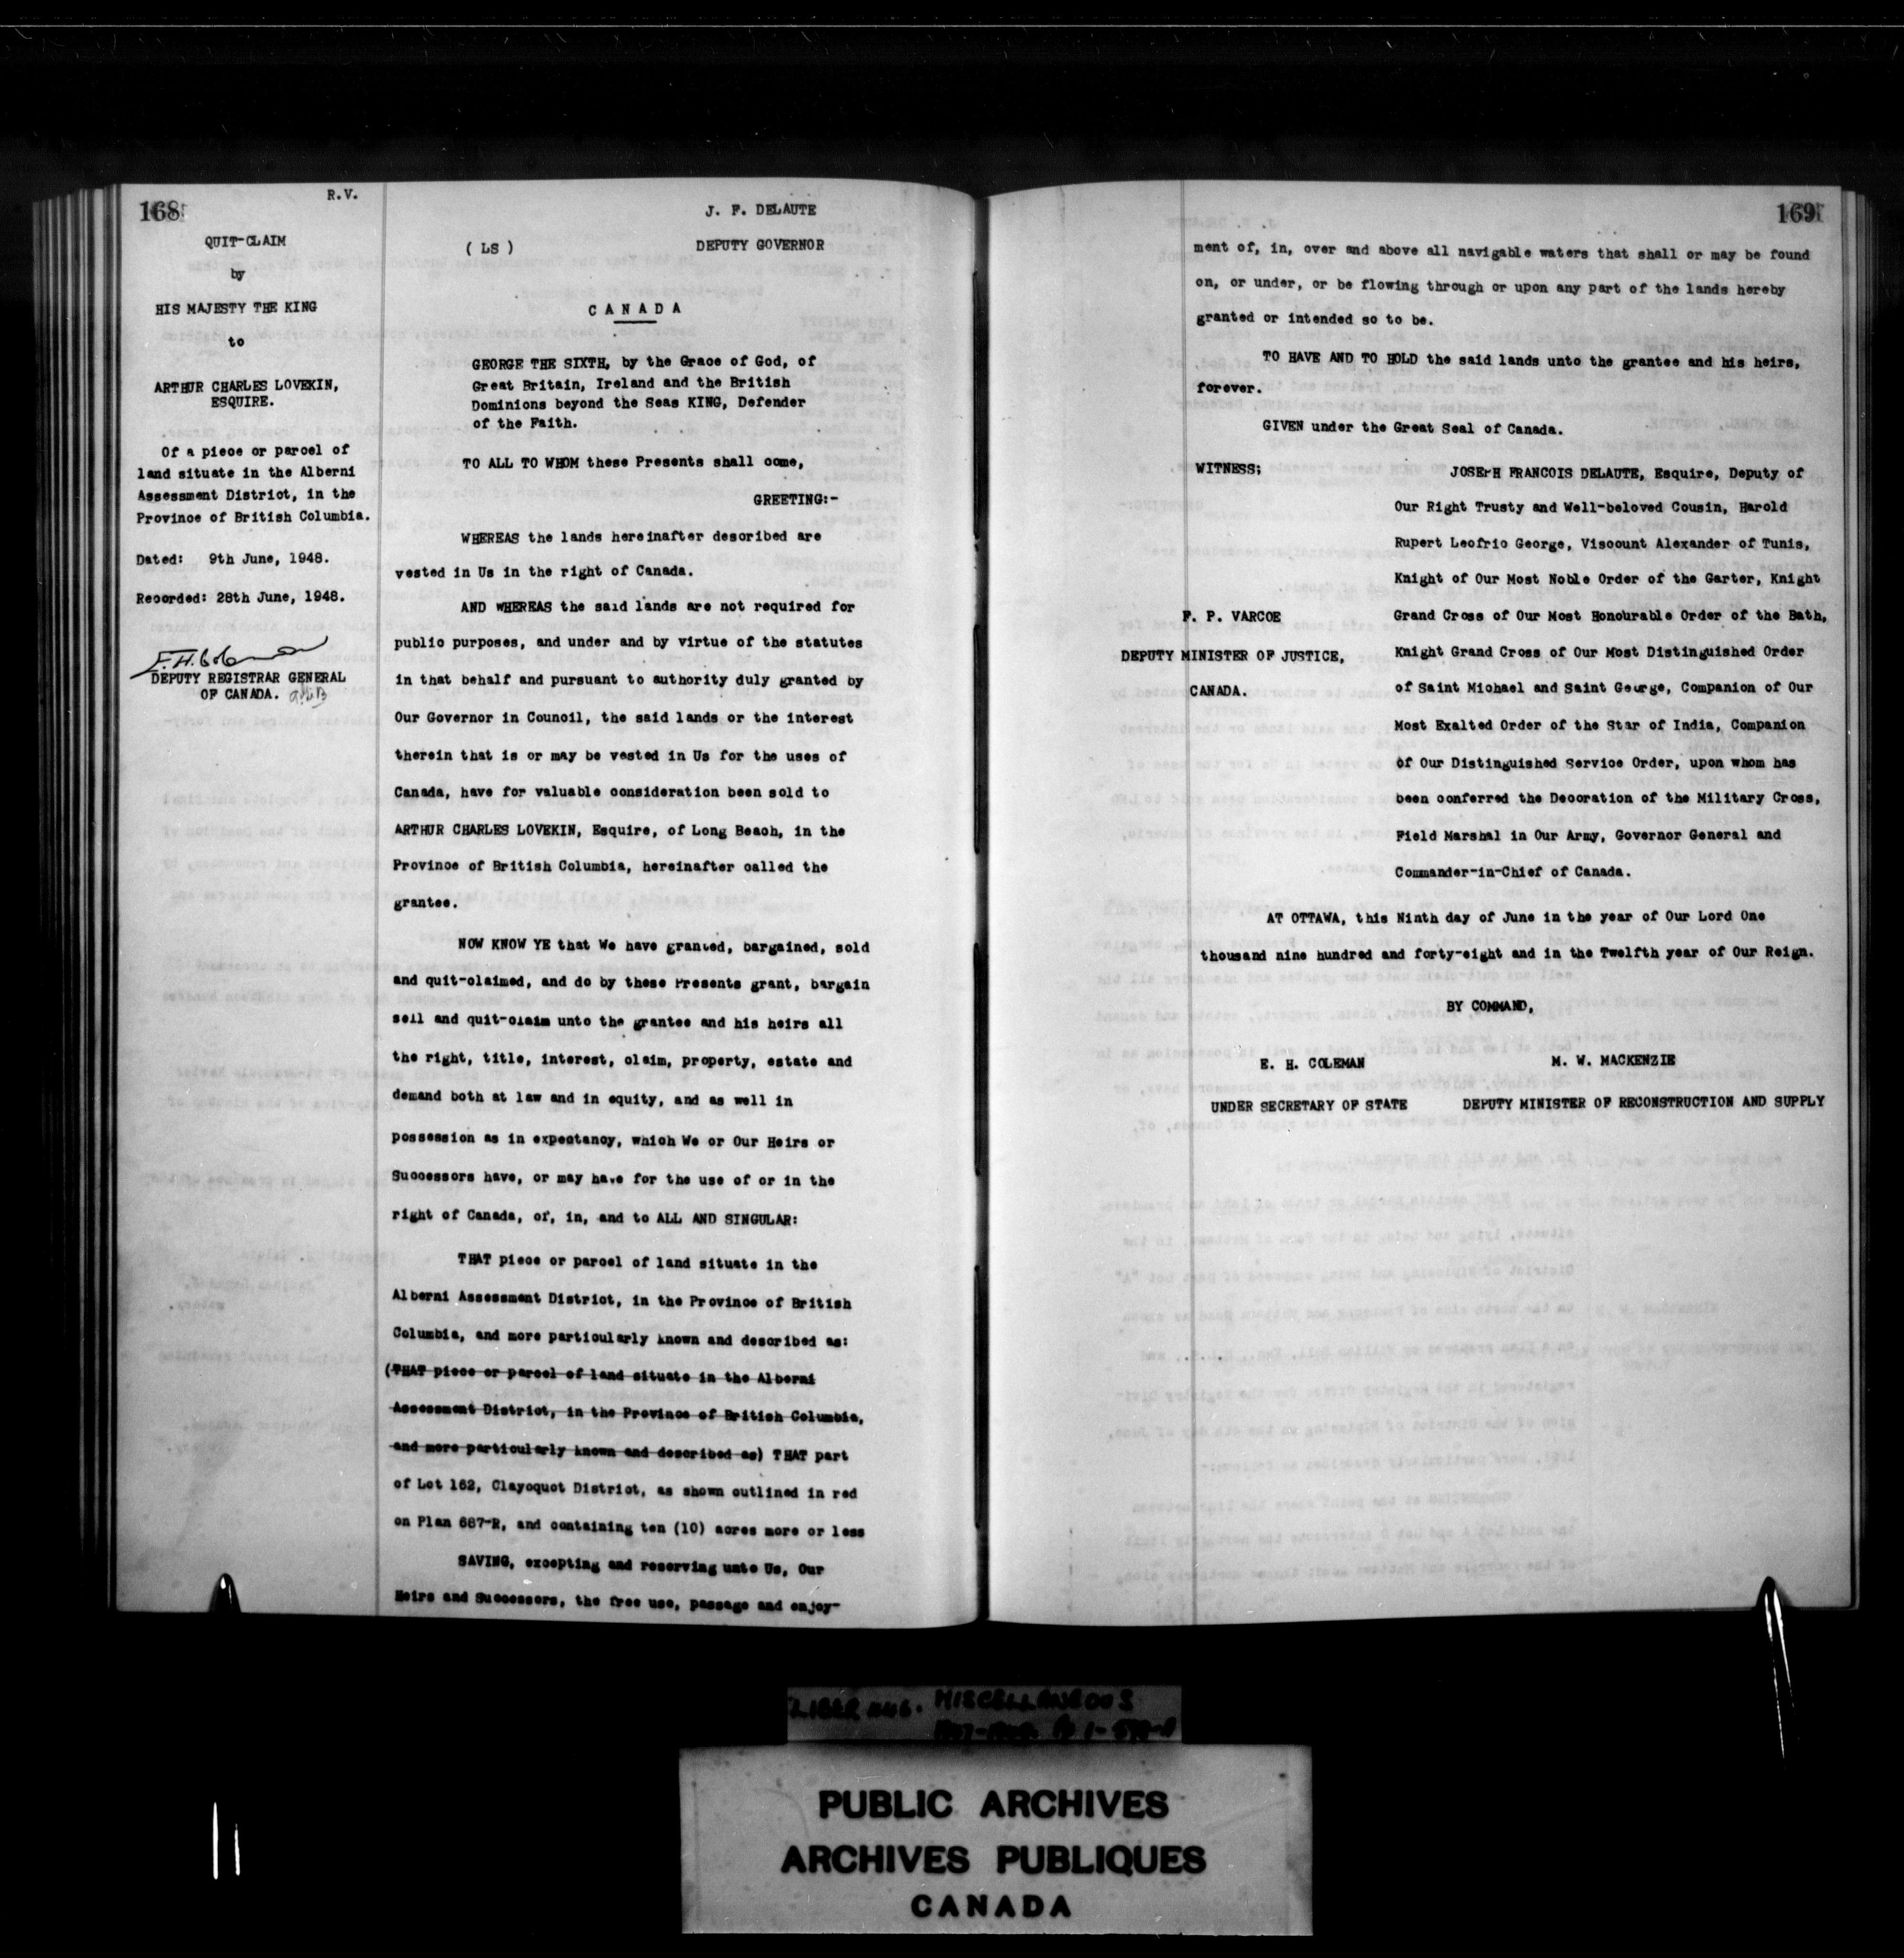 168
R.V.
QUIT-CLAIM
by
HIS MAJESTY THE KING
to
ARTHUR CHARLES LOVEKIN,
ESQUIRE.
Of a piece or parcel of
land situate in the Alberni
Assessment District, in the
Province of British Columbia.
Dated: 9th June, 1948.
Recorded: 28th June, 1948.
DEPUTY REGISTRAR GENERAL
OF CANADA.
J. F. DELAUTE
( LS ) DEPUTY GOVERNOR
CANADA
GEORGE THE SIXTH, by the Grace of God, of
Great Britain, Ireland and the British
Dominions beyond the Seas KING, Defender
of the Faith.
TO ALL TO WHOM these Presents shall come,
GREETING:-
WHEREAS the lands hereinafter described are
vested in Us in the right of Canada.
AND WHEREAS the said lands are not required for
public purposes, and under and by virtue of the statutes
in that behalf and pursuant to authority duly granted by
Our Governor in Council, the said lands or the interest
therein that is or may be vested in Us for the uses of
Canada, have for valuable consideration been sold to
ARTHUR CHARLES LOVEKIN, Esquire, of Long Beach, in the
Province of British Columbia, hereinafter called the
grantee.
NOW KNOW YE that We have granted, bargained, sold
and quit-claimed, and do by these Presents grant, bargain
sell and quit-claim unto the grantee and his heirs all
the right, title, interest, claim, property, estate and
demand both at law and in equity, and as well in
possession as in expectancy, which We or Our Heirs or
Successors have, or may have for the use of or in the
right of Canada, of, in, and to ALL AND SINGULAR:
THAT piece or parcel of land situate in the
Alberni Assessment District, in the Province of British
Columbia, and more particularly known and described as:
(THAT piece or parcel of land situate in the Alberni
Assessment District, in the Province of British Columbia,
and more particularly known and described as) THAT part
of Lot 162, Clayoquot District, as shown outlined in red
on Plan 687-R, and containing ten (10) acres more or less
SAVING, excepting and reserving unto Us, Our
Heirs and Successors, the free use, passage and enjoy-
169
ment of, in, over and above all navigable waters that shall or may be found
on, or under, or be flowing through or upon any part of the lands hereby
granted or intended so to be.
TO HAVE AND TO HOLD the said lands unto the grantee and his heirs,
forever.
GIVEN under the Great Seal of Canada.
WITNESS; JOSEPH FRANCOIS DELAUTE, Esquire, Deputy of
Our Right Trusty and Well-beloved Cousin, Harold
Rupert Leofric George, Viscount Alexander of Tunis,
Knight of Our Most Noble Order of the Garter, Knight
Grand Cross of Our Most Honourable Order of the Bath,
Knight Grand Cross of Our Most Distinguished Order
of Saint Michael and Saint George, Companion of Our
Most Exalted Order of the Star of India, Companion
of Our Distinguished Service Order, upon whom has
been conferred the Decoration of the Military Cross,
Field Marshal in Our Army, Governor General and
Commander-in-Chief of Canada.
F. P. VARCOE
DEPUTY MINISTER OF JUSTICE,
CANADA.
AT OTTAWA, this Ninth day of June in the year of Our Lord One
thousand nine hundred and forty-eight and in the Twelfth year of Our Reign.
BY COMMAND,
E. H. COLEMAN
UNDER SECRETARY OF STATE
M. W. MACKENZIE
DEPUTY MINISTER OF RECONSTRUCTION AND SUPPLY
LIBER 446. MISCELLANEOUS
PUBLIC ARCHIVES
ARCHIVES PUBLIQUES
CANADA